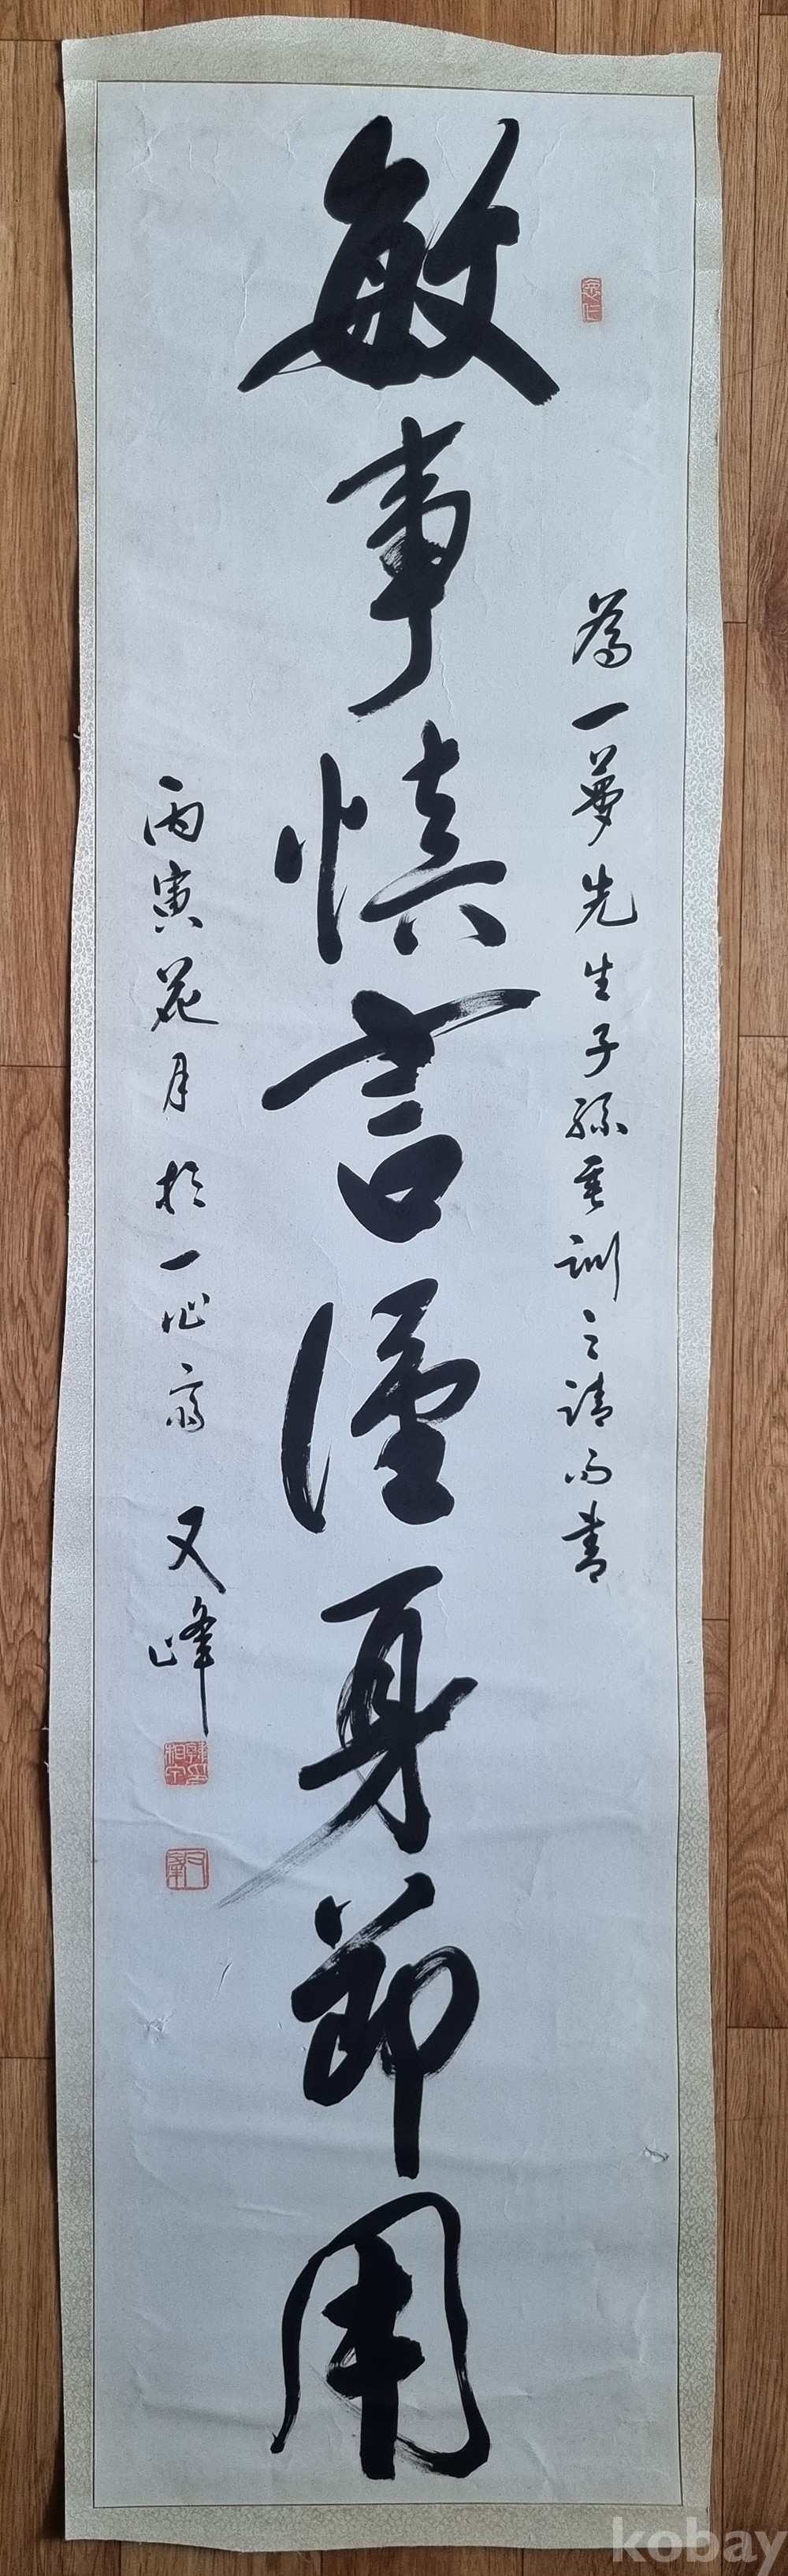 為一夢先生子孫垂訓之請而書
敏事慎言謹身節用
丙寅花月於一心齋 又峰
kobay